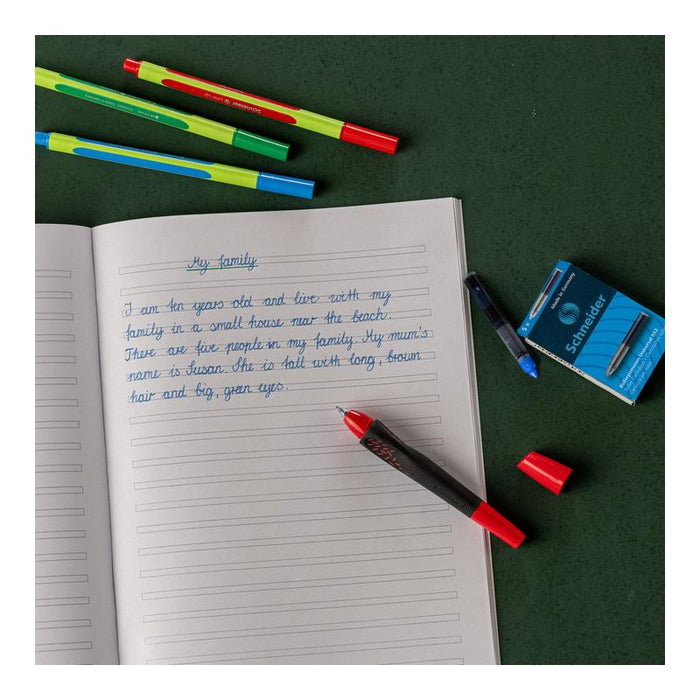 Schneider Line-Up
My family
I am ten years old and live with my
family in a small house near the beach.
There are five people in my family. My mum's
name is Susan. She is tall with long, brown
hair and big, green eyes.
Made in Germany
5 x
Schneider